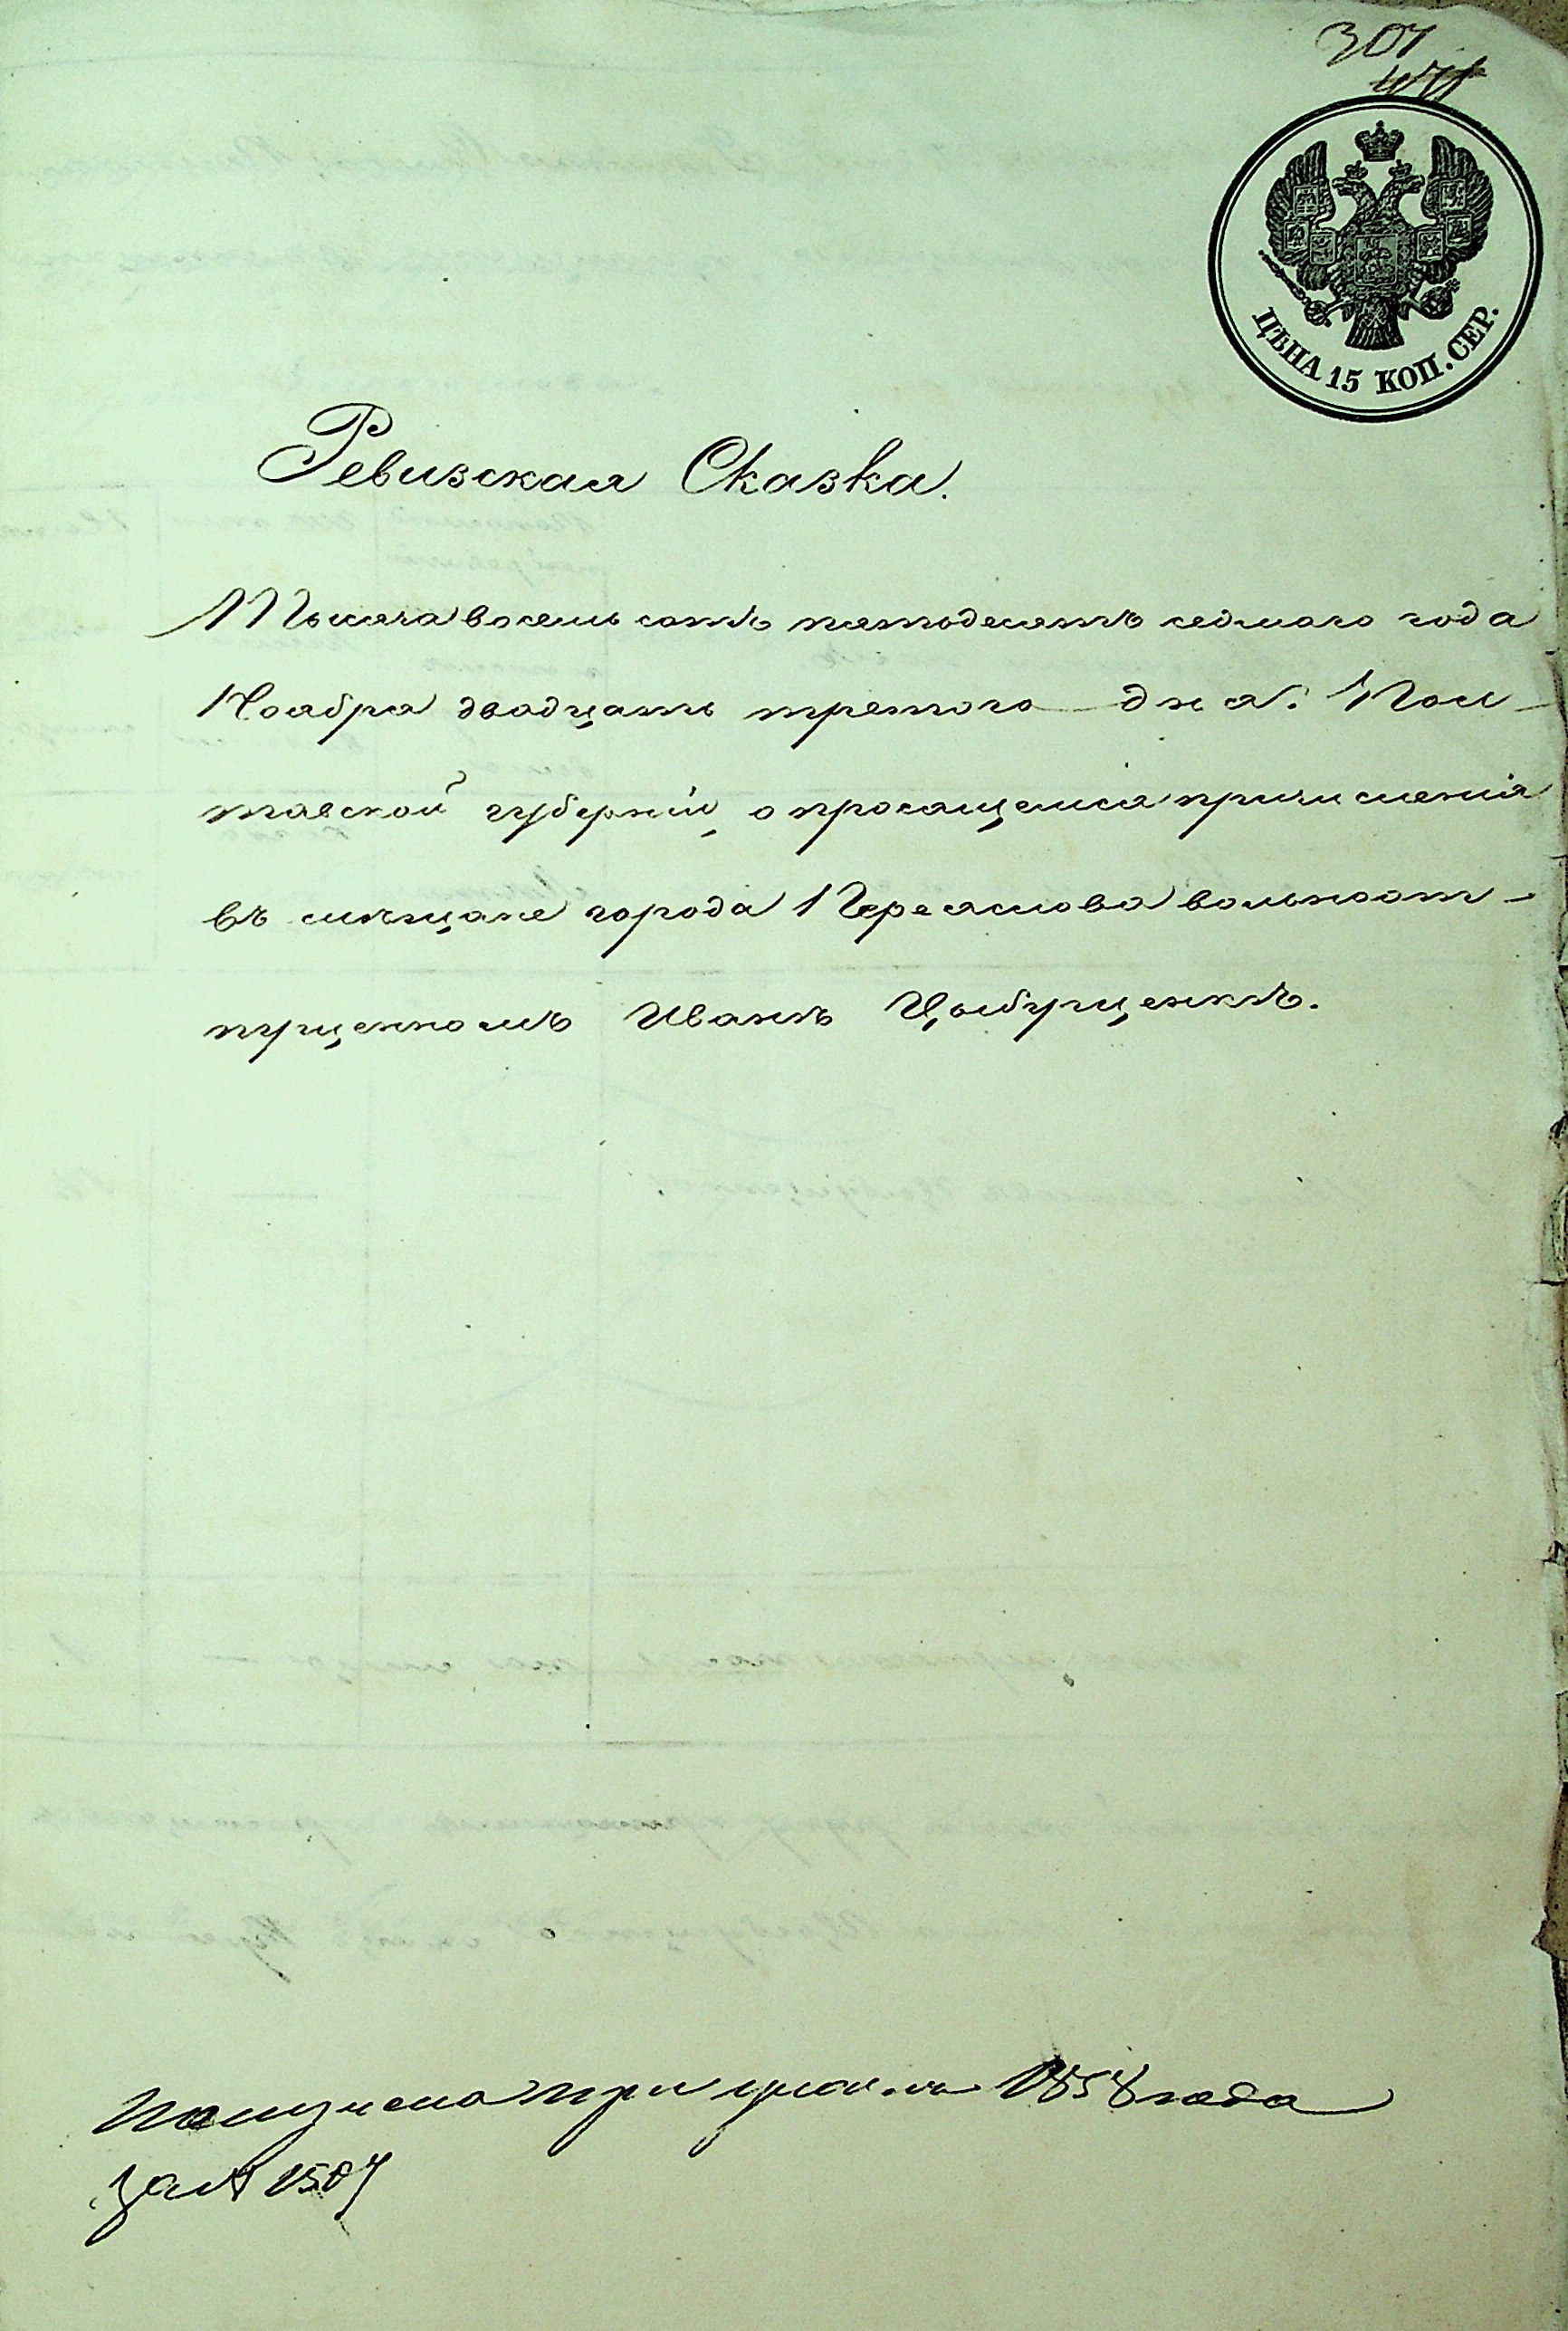 307
ЦѢНА 15 КОП. СЕР.
Ревизская Сказка.
Тысяча восемь сотъ пятодесятъ седмого года
Ноября двадцать третого дня. Пол-
тавской губерніи, о просящемся причисленія
въ мѣщане города Переяслова вольноот-
пущенномъ Иванѣ Цыбущенкѣ.
Получена при 1858 года
за № 1507